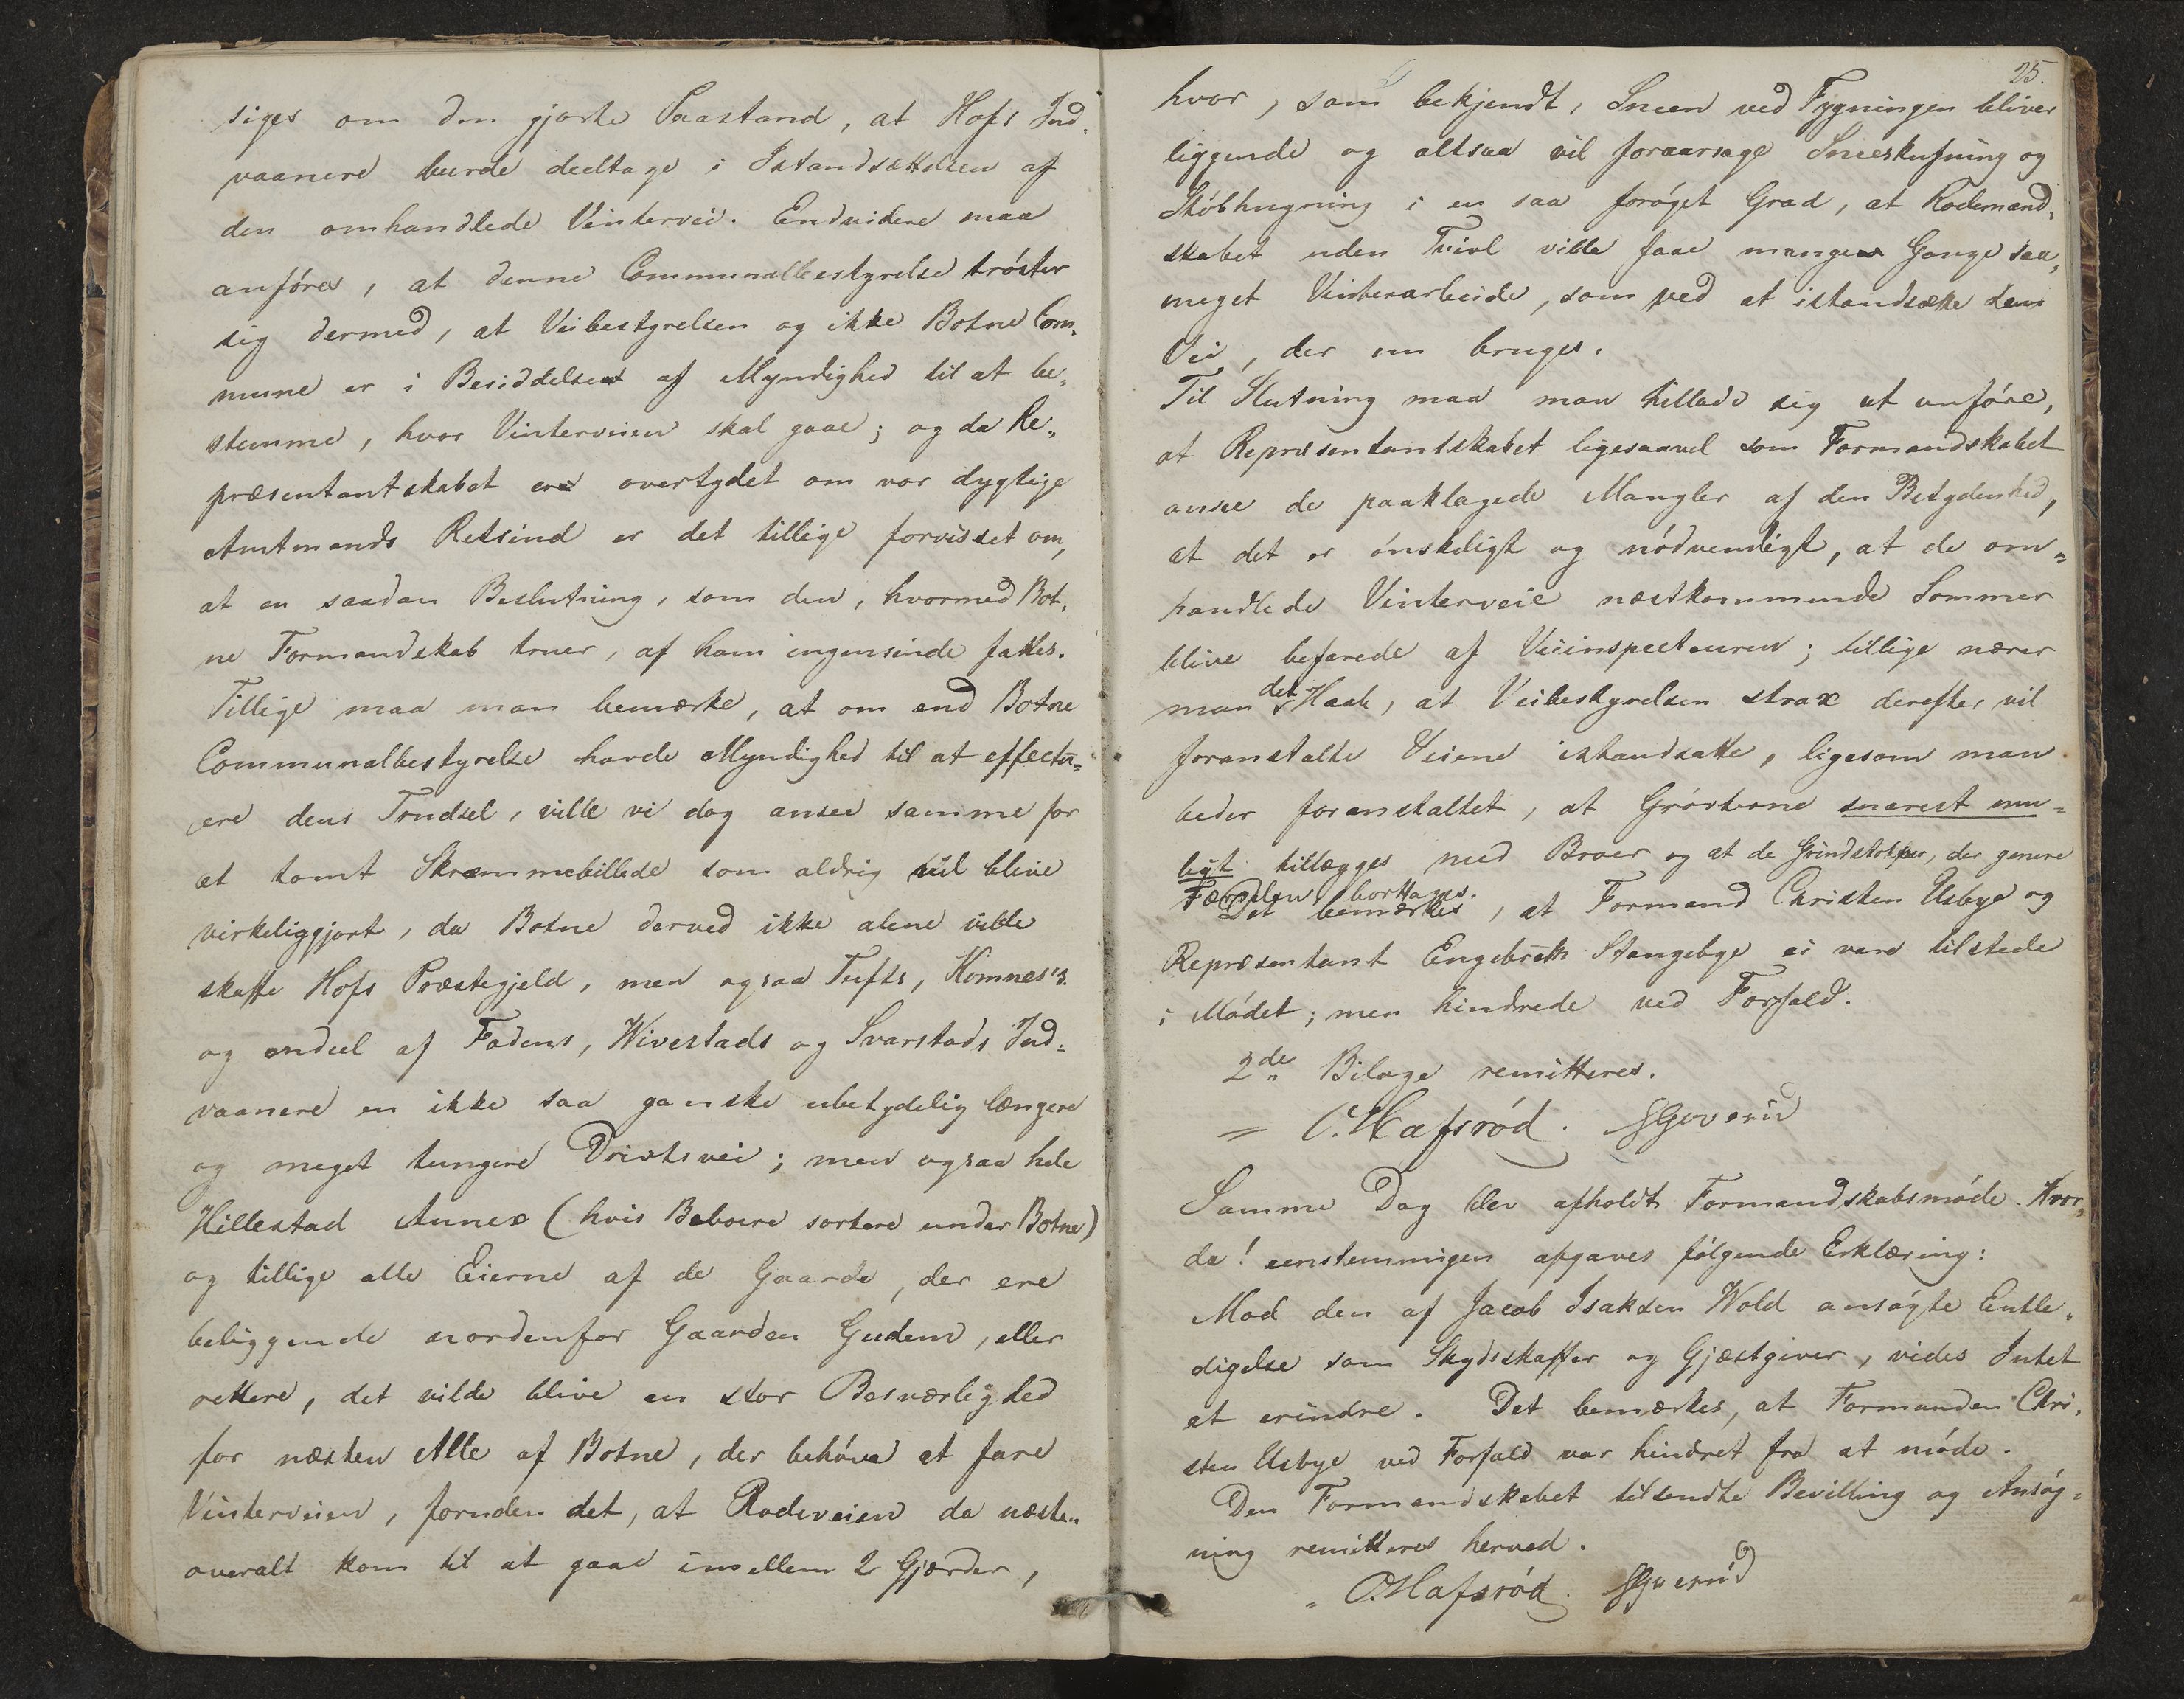 siges om den gjorte Paastand, at Hofs Ind-
vaanere burde deeltage i Istandsættelsen af
den omhandlede Vintervei. Endvidere maa
anføres, at denne Communalbestyrelse trøster
sig dermed, at Veibestyrelsen og ikke Botne Com-
mune er i Besiddelse af Myndighed til at be-
stemme, hvor Vinterveien skal gaae; og da Re-
præsentantskabet er overtydet om vor dygtige
Amtmands Retsind er det tillige forvisset om,
at en saadan Beslutning, som den, hvormed Bot-
ne Formandskab truer, af ham ingensinde fattes.
Tillige maa man bemærke, at om end Botne
Communalbestyrelse havde Myndighed til at effectu-
ere dens Trudsel, ville vi dog ansee samme for
at tomt Skræmmebillede som aldrig vil blive
virkeliggjort, da Botne derved ikke alene vilde
skaffe Hofs Præstegjeld, men ogsaa Tufts, Komnes's
og endeel af Fadens, Wivestads og Svarstads Ind-
vaanere en ikke saa ganske ubetydelig længere
og meget tungere Driftsvei; men ogsaa hele
Hillestad Annex (hvis Beboere sortere under Botne)
og tillige alle Eierne af de Gaarde, der ere
beliggende nordenfor Gaarden Gudem, eller
rettere, det vilde blive en stor Besværlighed
for næsten Alle af Botne, der behøve at fare
Vinterveien, foruden det, at Rodeveien da næsten
overalt kom til at gaae imellem 2 Gjærder,
25.
hvor, som bekjendt, Sneen ved Fygningen bliver
liggende og altsaa vil foraarsage Sneeskufning og
Støbhugning i en saa forøget Grad, at Rodemand-
skabet uden Tvivl vilde faae mange Gange saa
meget Vinterarbeide, som ved at istandsætte den
Vei, der nu bruges.
Til Slutning maa man tillade sig at anføre,
at Repræsentantskabet ligesaavel som Formandskabet
ansee de paaklagede Mangler af den Betydenhed,
at det er ønskeligt og nødvendigt, at de om-
handlede Vinterveie næstkommende Sommer
blive befarede af Veiinspecteuren; tillige nærer
man det Haab, at Veibestyrelsen strax derefter vil
foranstalte Veiene istandsatte, ligesom man
beder foranstaltet, at Grøfterne snarest mu-
ligt tillægges med Broer og at de Grindstolper, der genere
Færdselen borttages.
Det bemærkes, at Formand Christen Usbye og
Repræsentant Engebreth Stangebye ei vare tilstede
i Mødet; men hindrede ved Forfald.
2de Bilage remitteres.
O. Hafsrød.
Samme Dag blev afholdt Formandskabsmøde. Hvor-
da! eenstemmigen afgaves følgende Erklæring:
Mod den af Jacob Isaksen Wold ansøgte Entle-
digelse som Skydsskaffer og Gjæstgiver, vides Intet
at erindre. Det bemærkes, at Formanden Chri-
sten Usbye ved Forfald var hindret fra at møde.
Den Formandskabet tilsendte Bevilling og Ansøg-
ning remitteres herved.
O. Hafsrød.